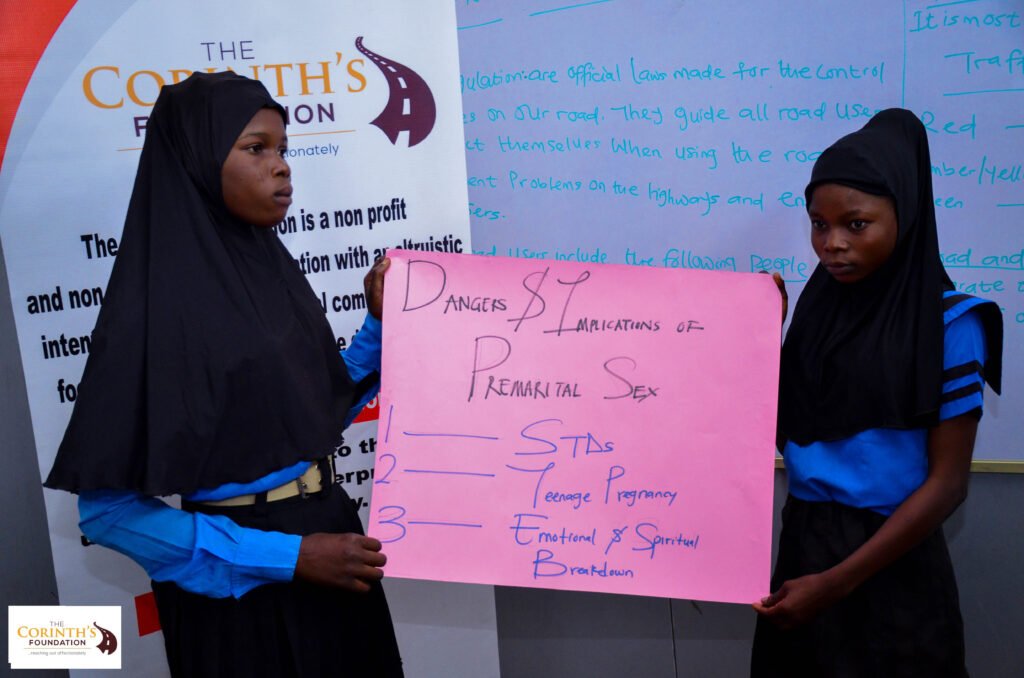 THE
CORINTH'S
FOUNDATION
The
is a non profit
and non
tion with an altruistic
inten
fo
It is most
Traff
ulation: are official laws made for the control
s on our road. They guide all road use
ct themselves when using the roa
ent Problems on the highways and en
ad users include the following People
Red
mber/yell
een
oad and
DANGERS $ IMPLICATIONS OF
PREMARITAL SEX
1 STDs
2 Teenage Pregnancy
3 Emotional $ Spiritual
Breakdown
THE
CORINTH'S
FOUNDATION
...reaching out affectionately